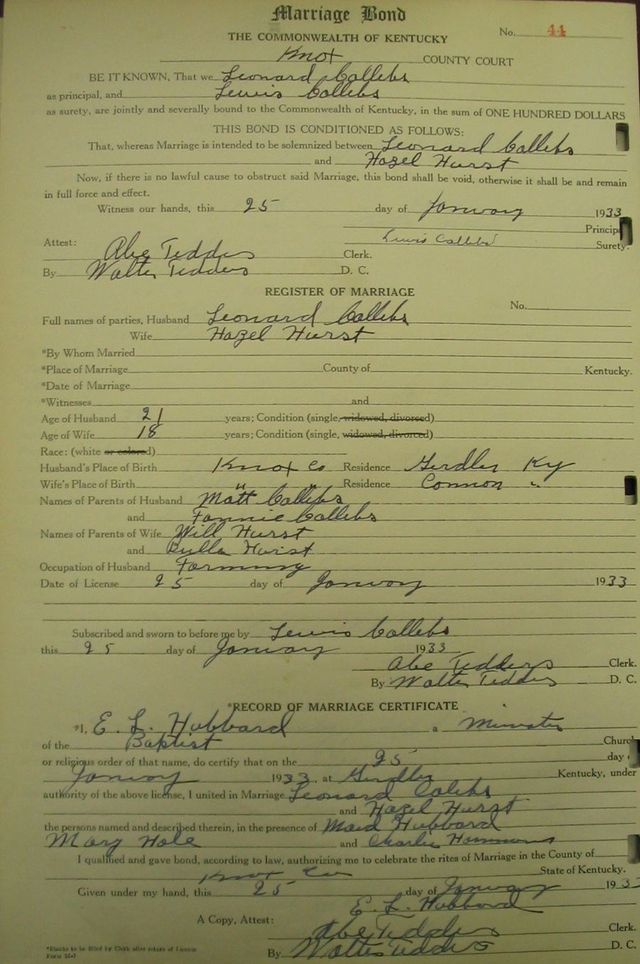 Marriage Bond
No. 44
THE COMMONWEALTH OF KENTUCKY
Knox COUNTY COURT
BE IT KNOWN, That we Leonard Callebs
as principal, and Lewis Callebs
as surety, are jointly and severally bound to the Commonwealth of Kentucky, in the sum of ONE HUNDRED DOLLARS
THIS BOND IS CONDITIONED AS FOLLOWS:
That, whereas Marriage is intended to be solemnized between Leonard Callebs
and Hazel Hurst
Now, if there is no lawful cause to obstruct said Marriage, this bond shall be void, otherwise it shall be and remain
in full force and effect.
Witness our hands, this 25 day of January 1933
Principa
Lewis Callebs Surety.
Attest: Abe Tedders Clerk.
By Walter Tedders D. C.
REGISTER OF MARRIAGE
No.
Full names of parties, Husband Leonard Callebs
Wife Hazel Hurst
*By Whom Married
*Place of Marriage County of Kentucky.
*Date of Marriage
*Witnesses and
Age of Husband 21 years; Condition (single, widowed, divorced)
Age of Wife 18 years; Condition (single, widowed, divorced)
Race: (white or colored)
Husband's Place of Birth Knox Co Residence Girdler Ky
Wife's Place of Birth " " Residence Cannon "
Names of Parents of Husband Matt Callebs
and Fannie Callebs
Names of Parents of Wife Will Hurst
and Hurst
Occupation of Husband Farming
Date of License 25 day of January 1933
Subscribed and sworn to before me by Lewis Callebs
this 25 day of January 1933
Abe Tedders Clerk.
By Walter Tedders D. C.
*RECORD OF MARRIAGE CERTIFICATE
*I, E. L. Hubbard a Minister
of the Baptist Church
or religious order of that name, do certify that on the 25 day
January 1933, at Girdler Kentucky, under
authority of the above license, I united in Marriage Leonard Calebs
and Hazel Hurst
the persons named and described therein, in the presence of Maud Hubbard
Mary Hale and Charlie Hammons
I qualified and gave bond, according to law, authorizing me to celebrate the rites of Marriage in the County of
Knox Co State of Kentucky.
Given under my hand, this 25 day of January 193
E. L. Hubbard
A Copy, Attest: Abe Tedders Clerk.
By Walter Tedders D. C.
*Blanks to be filled by Clerk after return of License